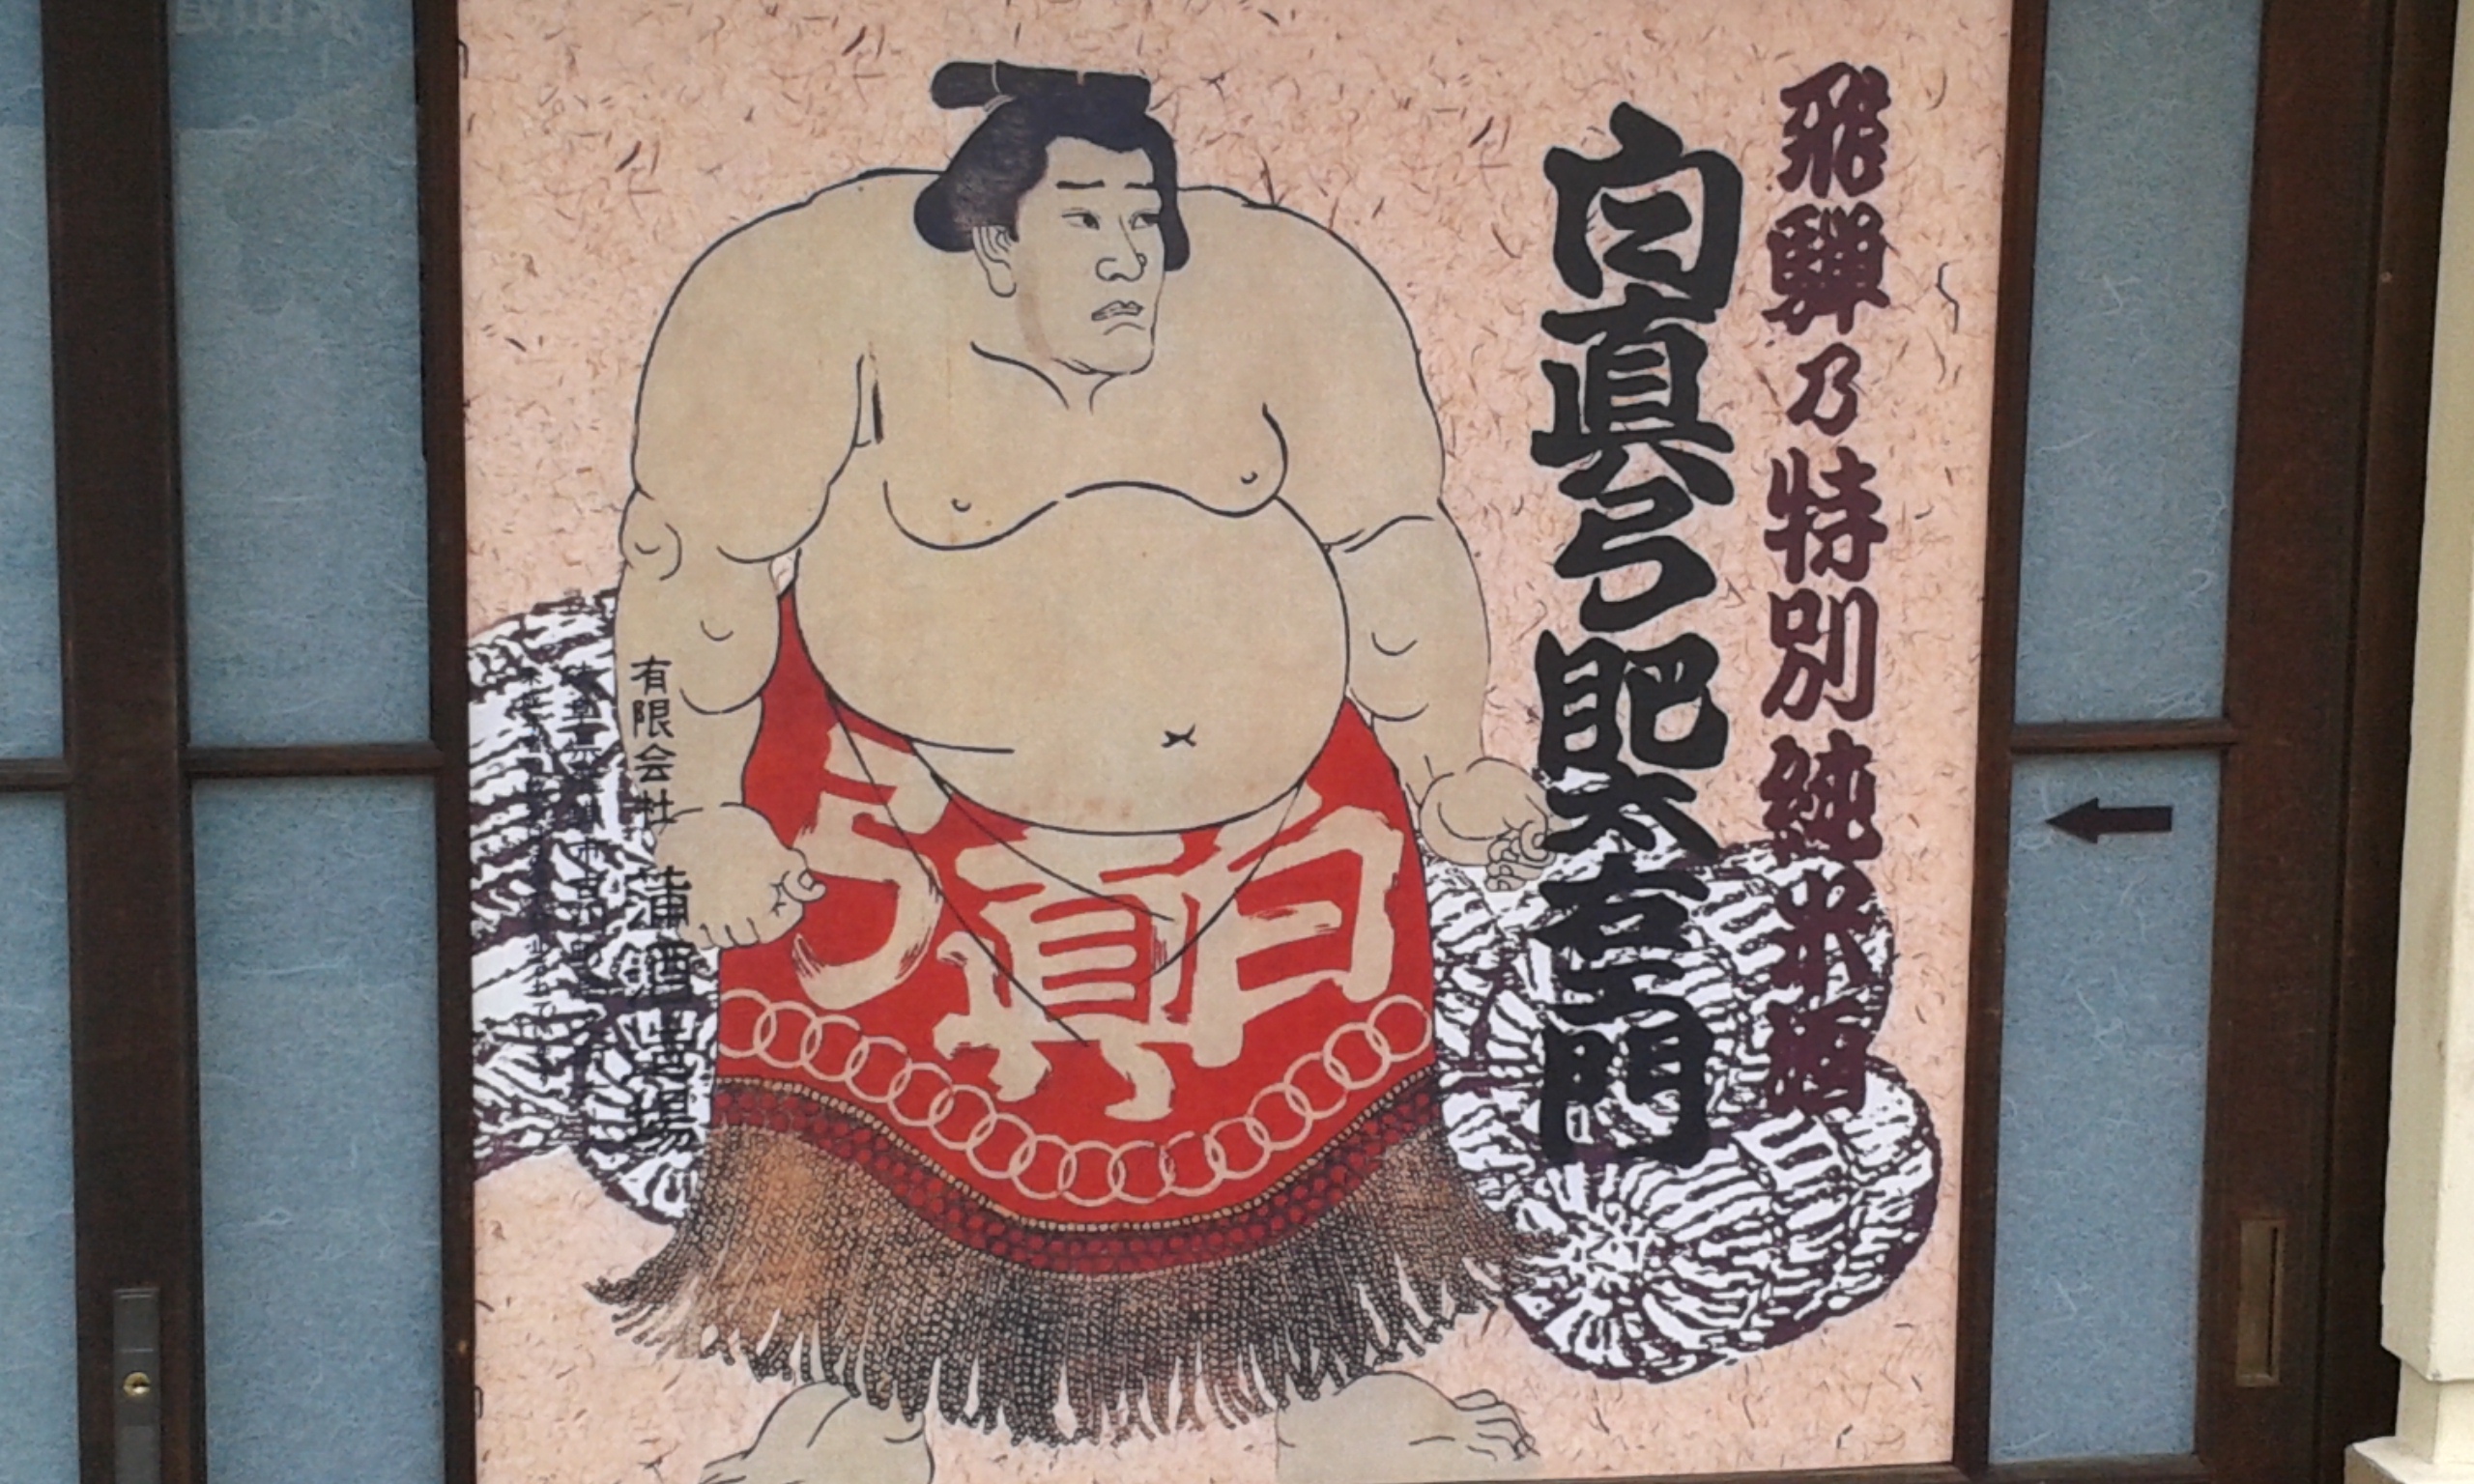 飛騨乃特別純米酒
白真弓肥太右エ門
白真弓
有限会社 蒲酒造場